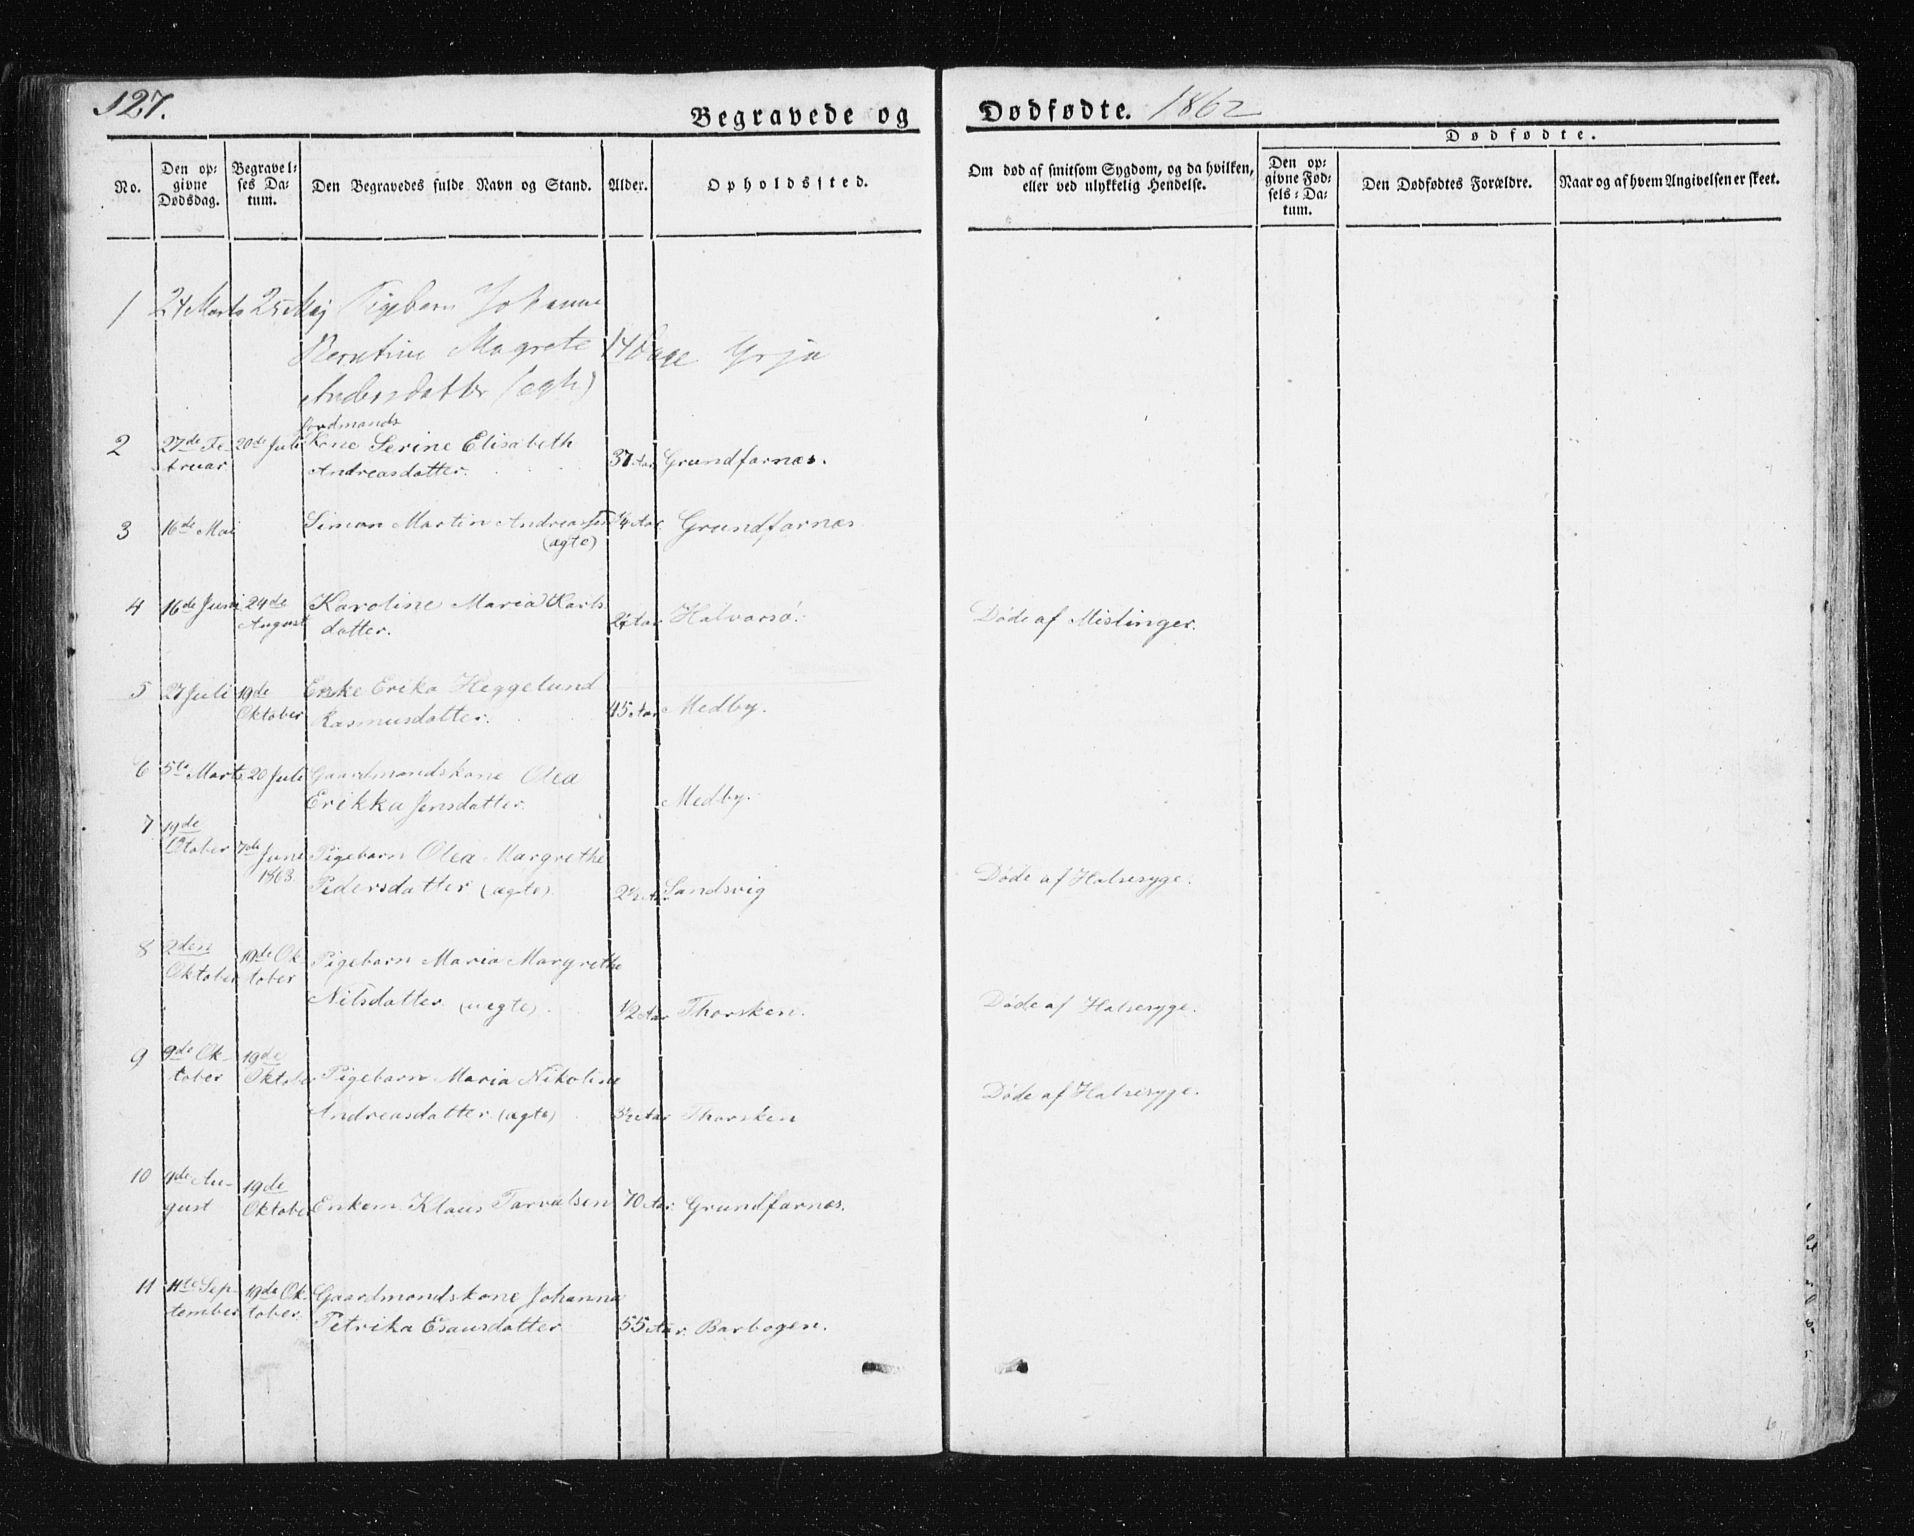 127.
Begravede og Dødfødte. 1862
Dødfødte.
No.
Den op-
givne
Dødsdag.
Begravel-
ses Da-
tum.
Den Begravedes fulde Navn og Stand.
Alder.
Opholdssted.
Om død af smitsom Sygdom, og da hvilken,
eller ved ulykkelig Hendelse.
Den op-
givne Fød-
sels-Da-
tum.
Den Dødfødtes Forældre.
Naar og af hvem Angivelsen er skeet.
1 24 Marts 25 Maj Pigebarn Johanne
Magrete 14 Dage Grja
Andersdatter (ægte)
2 27de Fe- 20de Juli Kone Serine Elisabeth
bruar Andreasdatter. 37 Aar Grundfarnæs.
3 16de Mai Simon Martin 1/4 Aar Grundfarnæs
(ægte)
4 16de Juni 24de Karoline Maria Karls
August datter. Aar Halvarsø. Døde af Mislinger.
5 27 Juli 19de Enke Erika Heggelund
Oktober Rasmusdatter. 45 Aar Medby.
6 5te Marts 20 Juli Gaardmandskone Olea
Erikka Jensdatter. Medby.
7 19de
Oktober 7de Juni Pigebarn Olea Margrethe
1863 Pedersdatter (ægte). 2 1/2 A. Sandsvig Døde af Halsesyge.
8 2den 19de Ok Pigebarn Maria Margrethe
Oktober tober
Nilsdatter (uægte). 1/2 Aar Thorsken. Døde af Halsesyge.
9 9de Ok- 19de
tober Oktober Pigebarn Maria Nikoline
Andreasdatter (ægte) 3 1/2 Aar Thorsken Døde af Halsesyge.
10 9de Au- 19de
gust Oktober Enkem. Klaus 70 Aar. Grundfarnæs.
11 11te Sep- 19de Ok- Gaardmandskone Johanna
tember tober. Petrika Esausdatter 55 Aar. Barbogen.